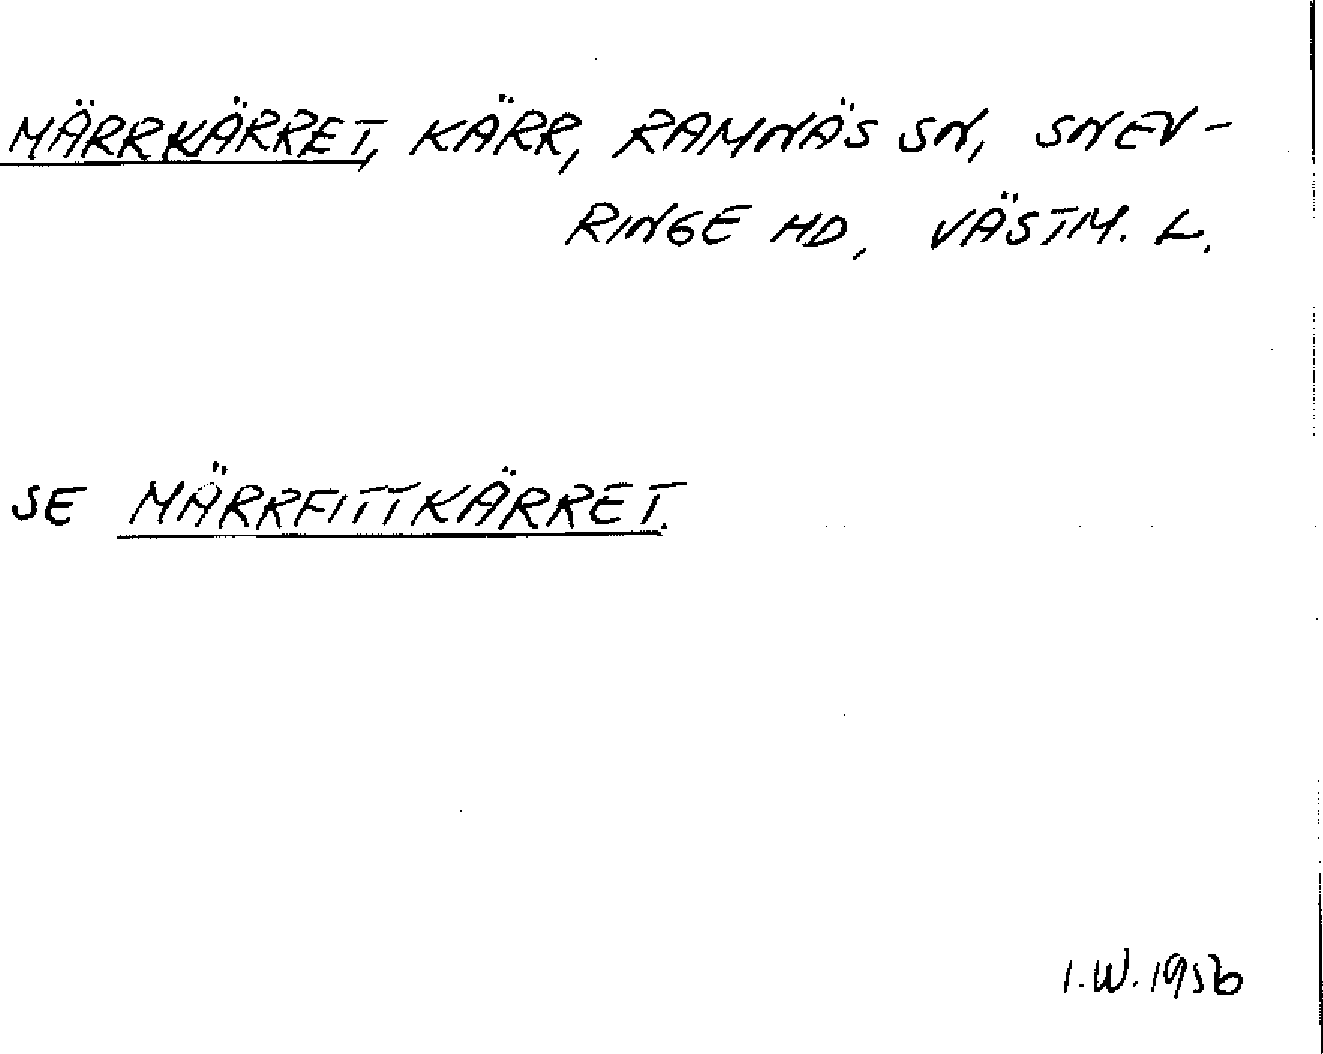 MÄRRKÄRRET, KÄRR, RAMNÄS SN, SNEV-
RINGE HD, VÄSTM. L.
SE MÄRRFITTKÄRRET.
I.W. 1956